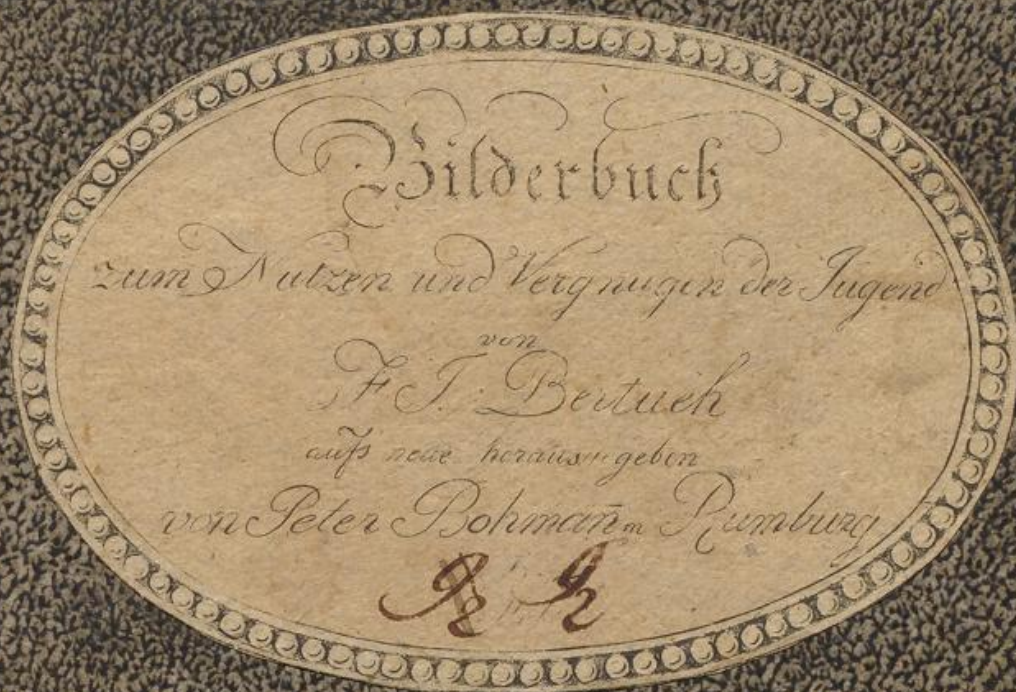 Bilderbuch
zum Nutzen und Vergnugen der Jugend
von
F J. Bertuch
aufs neue herausgeben
von Peter Bohmañ in Rumburg